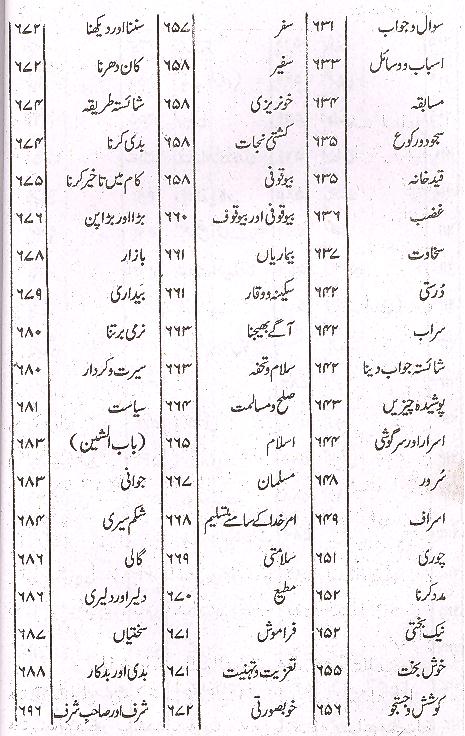 سوال و جواب ۶۳۱
اسباب و وسائل ۶۳۳
مسابقہ ۶۳۴
سجود و رکوع ۶۳۵
قید خانہ ۶۳۵
غضب ۶۳۶
سخاوت ۶۳۷
دُرستی ۶۴۲
سراب ۶۴۲
شائستہ جواب دینا ۶۴۲
پوشیدہ چیزیں ۶۴۳
اسرار اور سرگوشی ۶۴۴
سُرور ۶۴۸
اسراف ۶۴۹
چوری ۶۵۱
مدد کرنا ۶۵۲
نیک بختی ۶۵۲
خوش بخت ۶۵۵
کوشش و جستجو ۶۵۶
سفر ۶۵۷
سفیر ۶۵۸
خونریزی ۶۵۸
کشتئ نجات ۶۵۸
بیوقوفی ۶۵۸
بیوقوفی اور بیوقوف ۶۶۰
بیماریاں ۶۶۱
سکینہ و وقار ۶۶۱
آگے بھیجنا ۶۶۳
سلام و تحفہ ۶۶۳
صلح و مسالمت ۶۶۴
اسلام ۶۶۵
مسلمان ۶۶۷
امر خدا کے سامنے تسلیم ۶۶۸
سلامتی ۶۶۹
مطیع ۶۷۰
فراموش ۶۷۱
تعزیت و تہنیت ۶۷۱
خوبصورتی ۶۷۲
سننا اور دیکھنا ۶۷۲
کان دھرنا ۶۷۲
شائستہ طریقہ ۶۷۴
بدی کرنا ۶۷۴
کام میں تاخیر کرنا ۶۷۵
بڑا اور بڑا پن ۶۷۶
بازار ۶۷۸
بیداری ۶۷۹
نرمی برتنا ۶۸۰
سیرت و کردار ۶۸۰
سیاست ۶۸۱
(باب الشین) ۶۸۳
جوانی ۶۸۳
شکم سیری ۶۸۴
گالی ۶۸۶
دلیر اور دلیری ۶۸۶
سختیاں ۶۸۷
بدی اور بدکار ۶۸۸
شرف اور صاحب شرف ۶۹۶